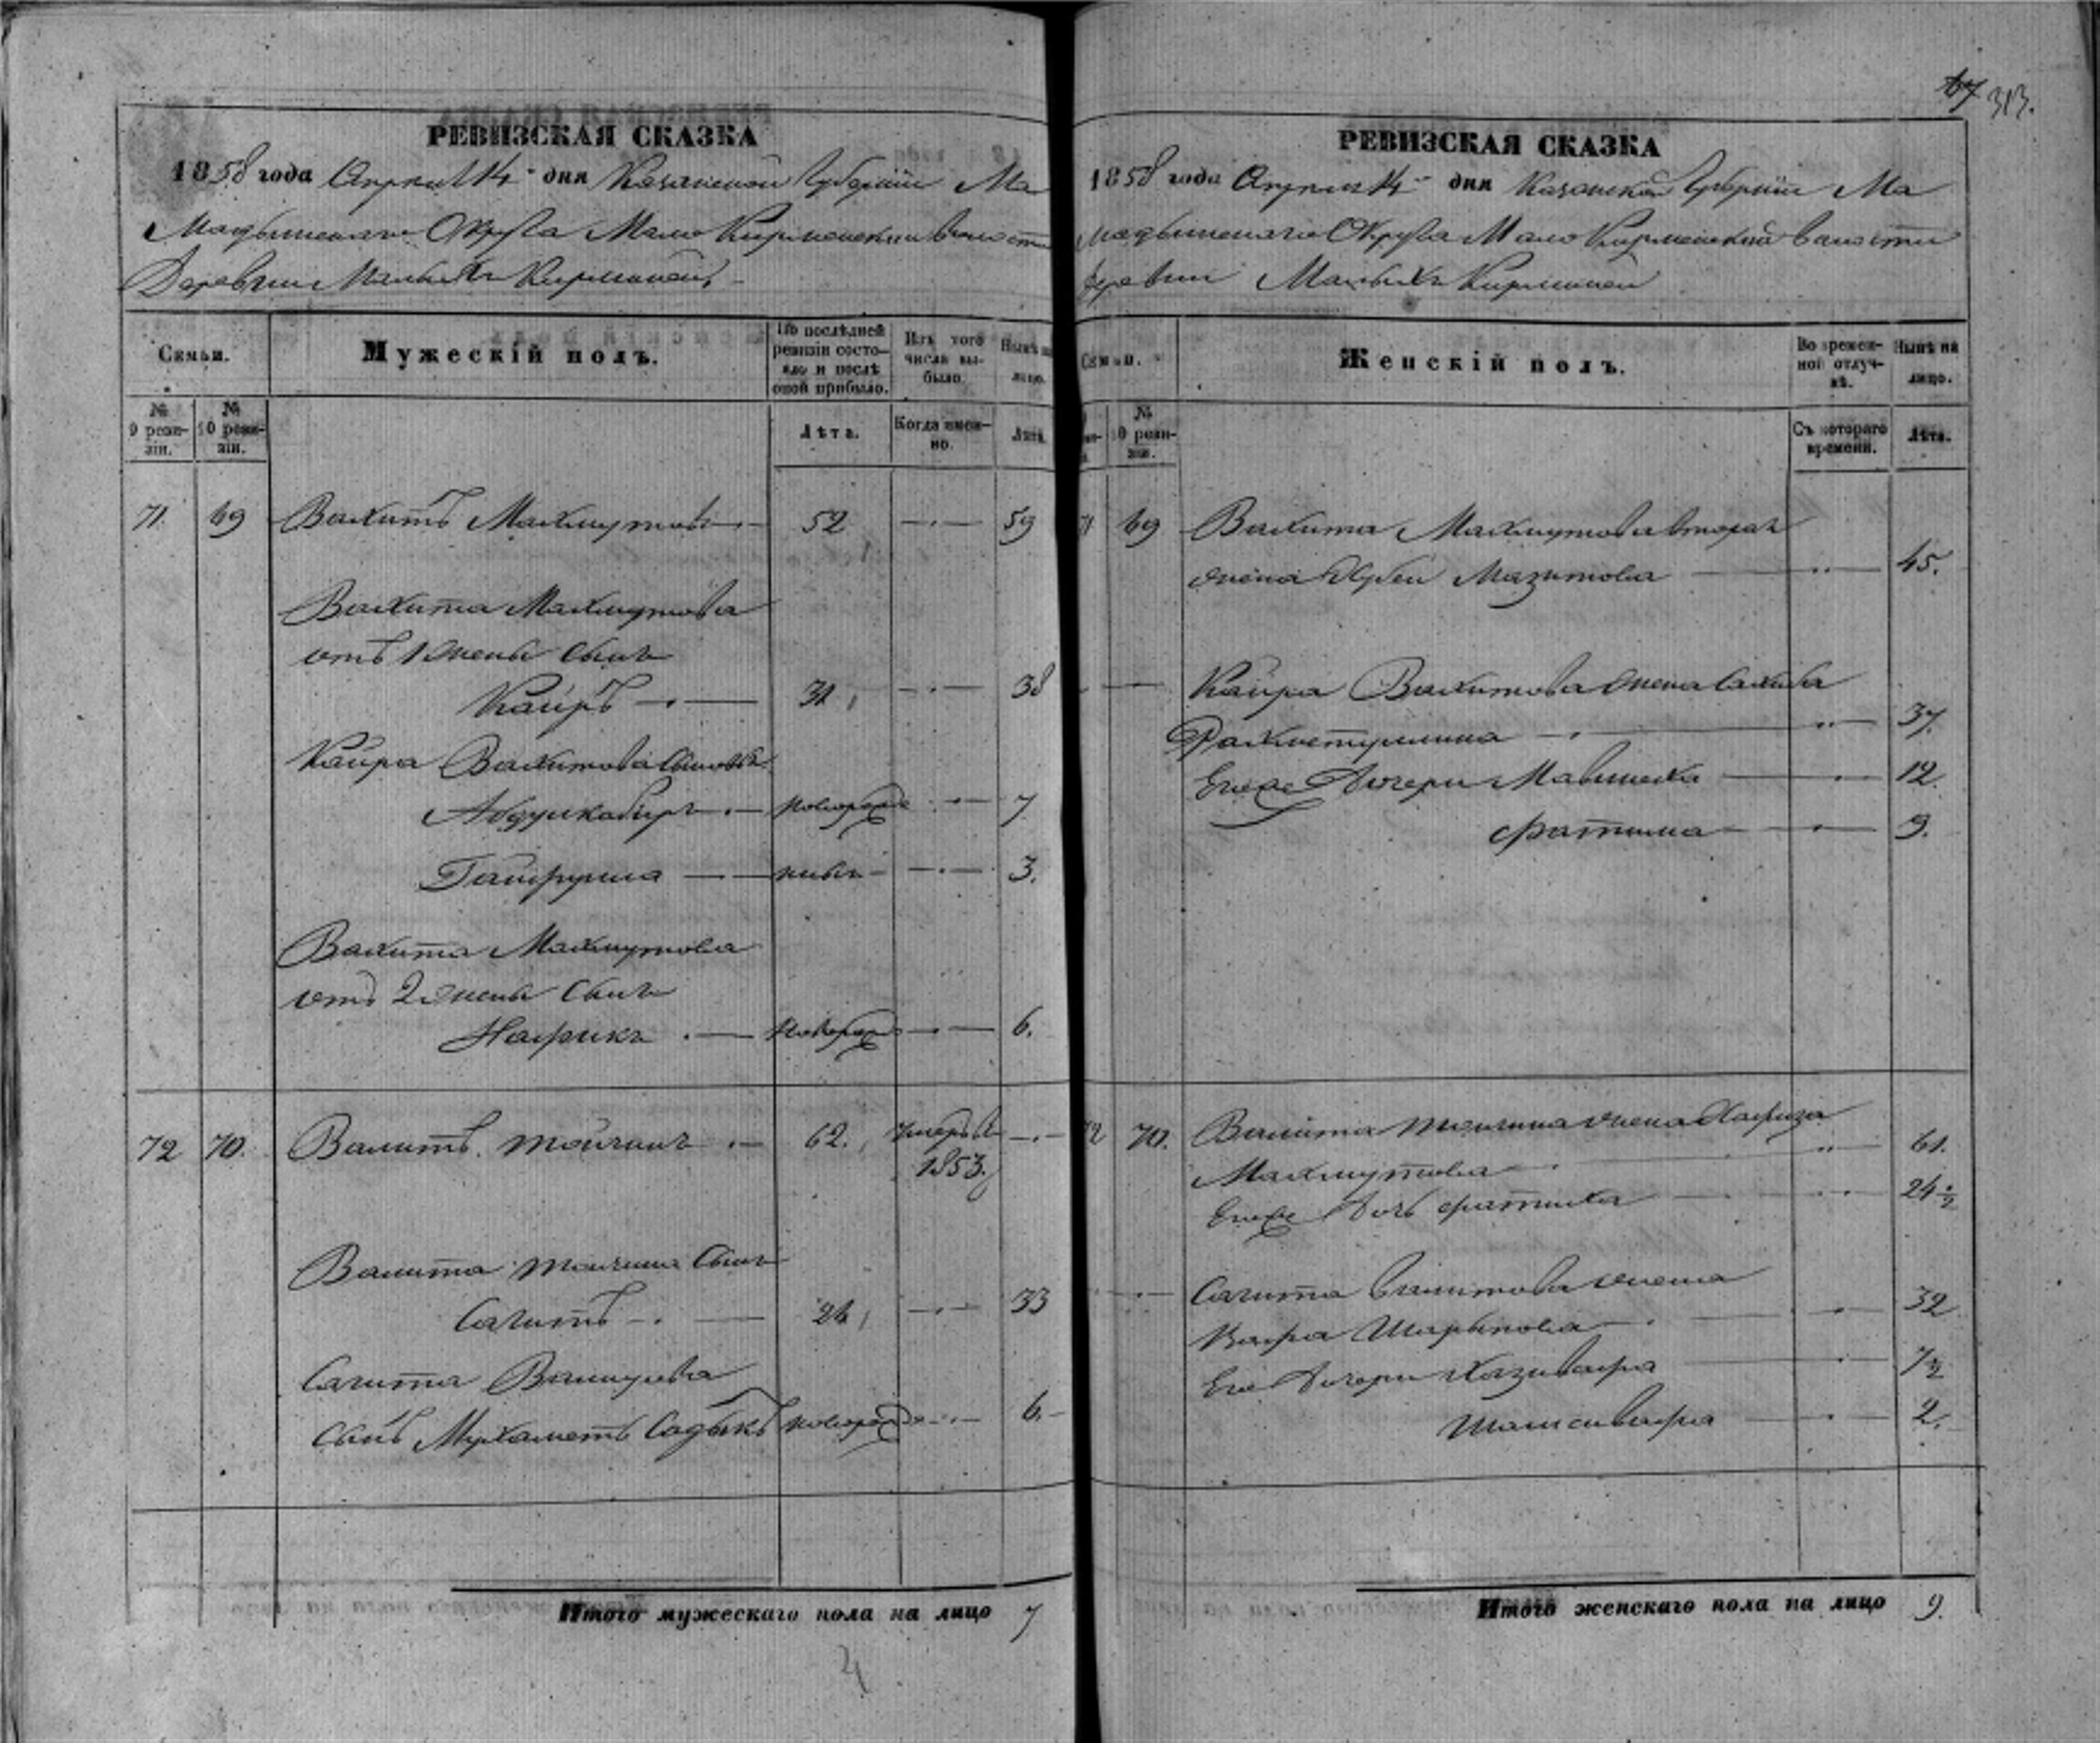 67 313.
РЕВИЗСКАЯ СКАЗКА
1858 года Апреля 14 дня Казанской Губернии Ма
Мадышскаго Округа Мало Кирменской волости
Деревни Малыхъ Кирменей
Семьи.
Мужескій полъ.
По послѣдней ревизіи состояло и послѣ оной прибыло.
Изъ того числа выбыло.
Нынѣ на лицо.
№ 9 ревизіи.
№ 10 ревизіи.
Лѣта.
Когда именно.
Лѣта.
71. 69 Вахитъ Махмутовъ 52 59
Вахита Махмутова
отъ 1 жены сынъ
Каиръ 31 38
Каира Вахитова сыновья
Абдулкабиръ новорожде 7
Гайфулла ныя 3.
Вахита Махмутова
отъ 2 жены сынъ
Нафикъ новорож 6.
72 70. Валитъ Тойчинъ 62. умеръ въ
1853.
Валита Тойчина сынъ
Сагитъ 26 33
Сагита Валитова
сынъ Мухаметъ Садыкъ новорожд 6.
Итого мужескаго пола на лицо 7
4
РЕВИЗСКАЯ СКАЗКА
1858 года Апреля 14 дня Казанской Губернии Ма
мадышскаго Округа Мало Кирменской волости
деревни Малыхъ Кирменей
Семьи.
Женскій полъ.
Во временной отлучкѣ.
Нынѣ на лицо.
№ 10 ревизіи.
Съ котораго времени.
Лѣта.
69 Вахита Махмутова вторая
жена Мазитова 45.
Каира Вахитова жена Сахиба
Рахметуллина 37.
Его же дочери Мавлиха 12.
Фатима 9.
72 70. Валита Тойчина жена Хафиза
Махмутова 61.
Его же дочь Фатиха 24½
Сагита Валитова жена
Шарыпова 32
Его дочери Хазивафа 7½
Шамсивафа 2.
Итого женскаго пола на лицо 9.